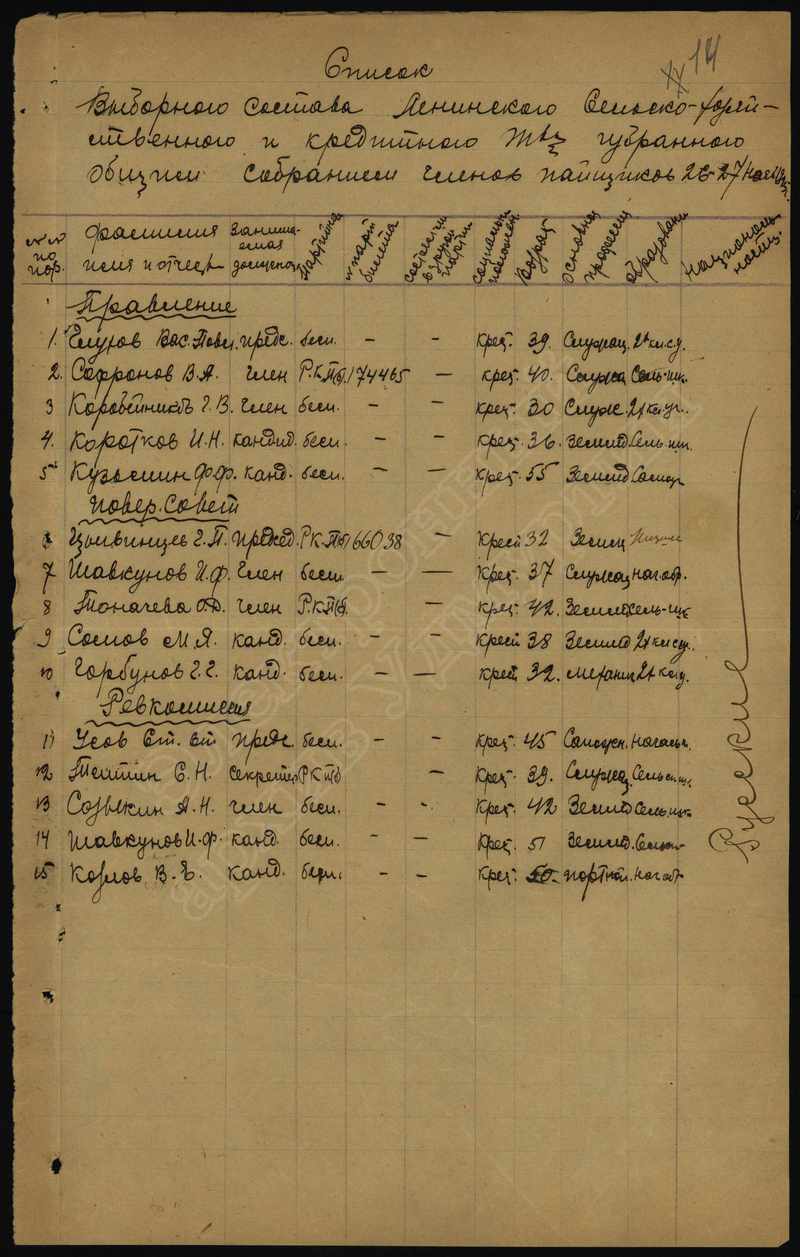 14
Список
Выборного состава Ленинского Сельско-хозяй-
ственного и кредитного Тва избранного
общим собранием членов пайщиков 26-27
№№ по пор. фамилия имя и отчест. Занима-емая должность Партийн № парт билета состоял ли в другой партии социальн положен Возраст основная профессия образован национальность
Правление
1. Глухов Вас. Павл. предс. бесп. - - крест. 39. Служащ. 2х кл.
2. Сафронов В.А. член Р.К.П.(б) 174465 — крест. 40. Сель-шк.
3 Коровейников Г.В. член бесп. - - крест. 30 Служ. 2х кл.
4. Коротков И.Н. кандид. бесп. - - крест. 36. Землед Сель-шк.
5 Кузьмин Ф.Ф. канд. бесп. - — крест. 55 Землед
Повер. Совет
Г.П. Председ. Р.К.П.(б) 166038 - Крест 32
7 Шавкунов И.Ф. Член бесп — — Крест. 37 Служащ нач. обр.
8 член Р.К.П.(б). — крест. 42. Землед сель-шк
9 Сомов М.Я. канд. бесп. - - крест 38 Землед 2х кл.
10 Горбунов Г.Г. канд. бесп. - — крест 32. 2х кл.
Ревкомиссия
11 Усов Ст. Ст предс. бесп. - - Крест. 45
12 С.Н. секретар Р.К.П.б — Крест. 39. Служащ. Сельск шк
13 Созыкин А.Н. член бесп. - - Крест. 42 Землед Сель-шк
14 Шавкунов И.Ф. канд. бесп. - — Крест. 51 Землед.
15 Козлов В.Е. канд. бесп. - — Крест. 50 портной. нач обр
Русские